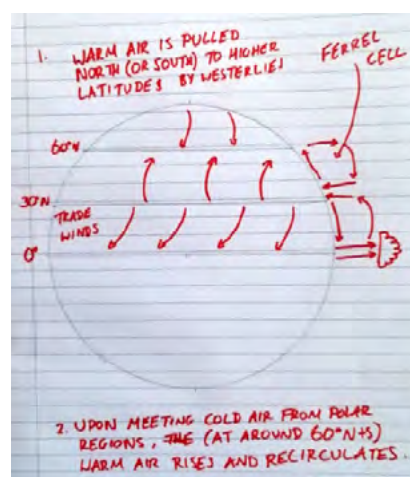 1. WARM AIR IS PULLED
NORTH (OR SOUTH) TO HIGHER
LATITUDES BY WESTERLIES
FERREL
CELL
60°N
30°N
TRADE
WINDS
0°
2. UPON MEETING COLD AIR FROM POLAR
REGIONS, THE (AT AROUND 60°N+S)
WARM AIR RISES AND RECIRCULATES.